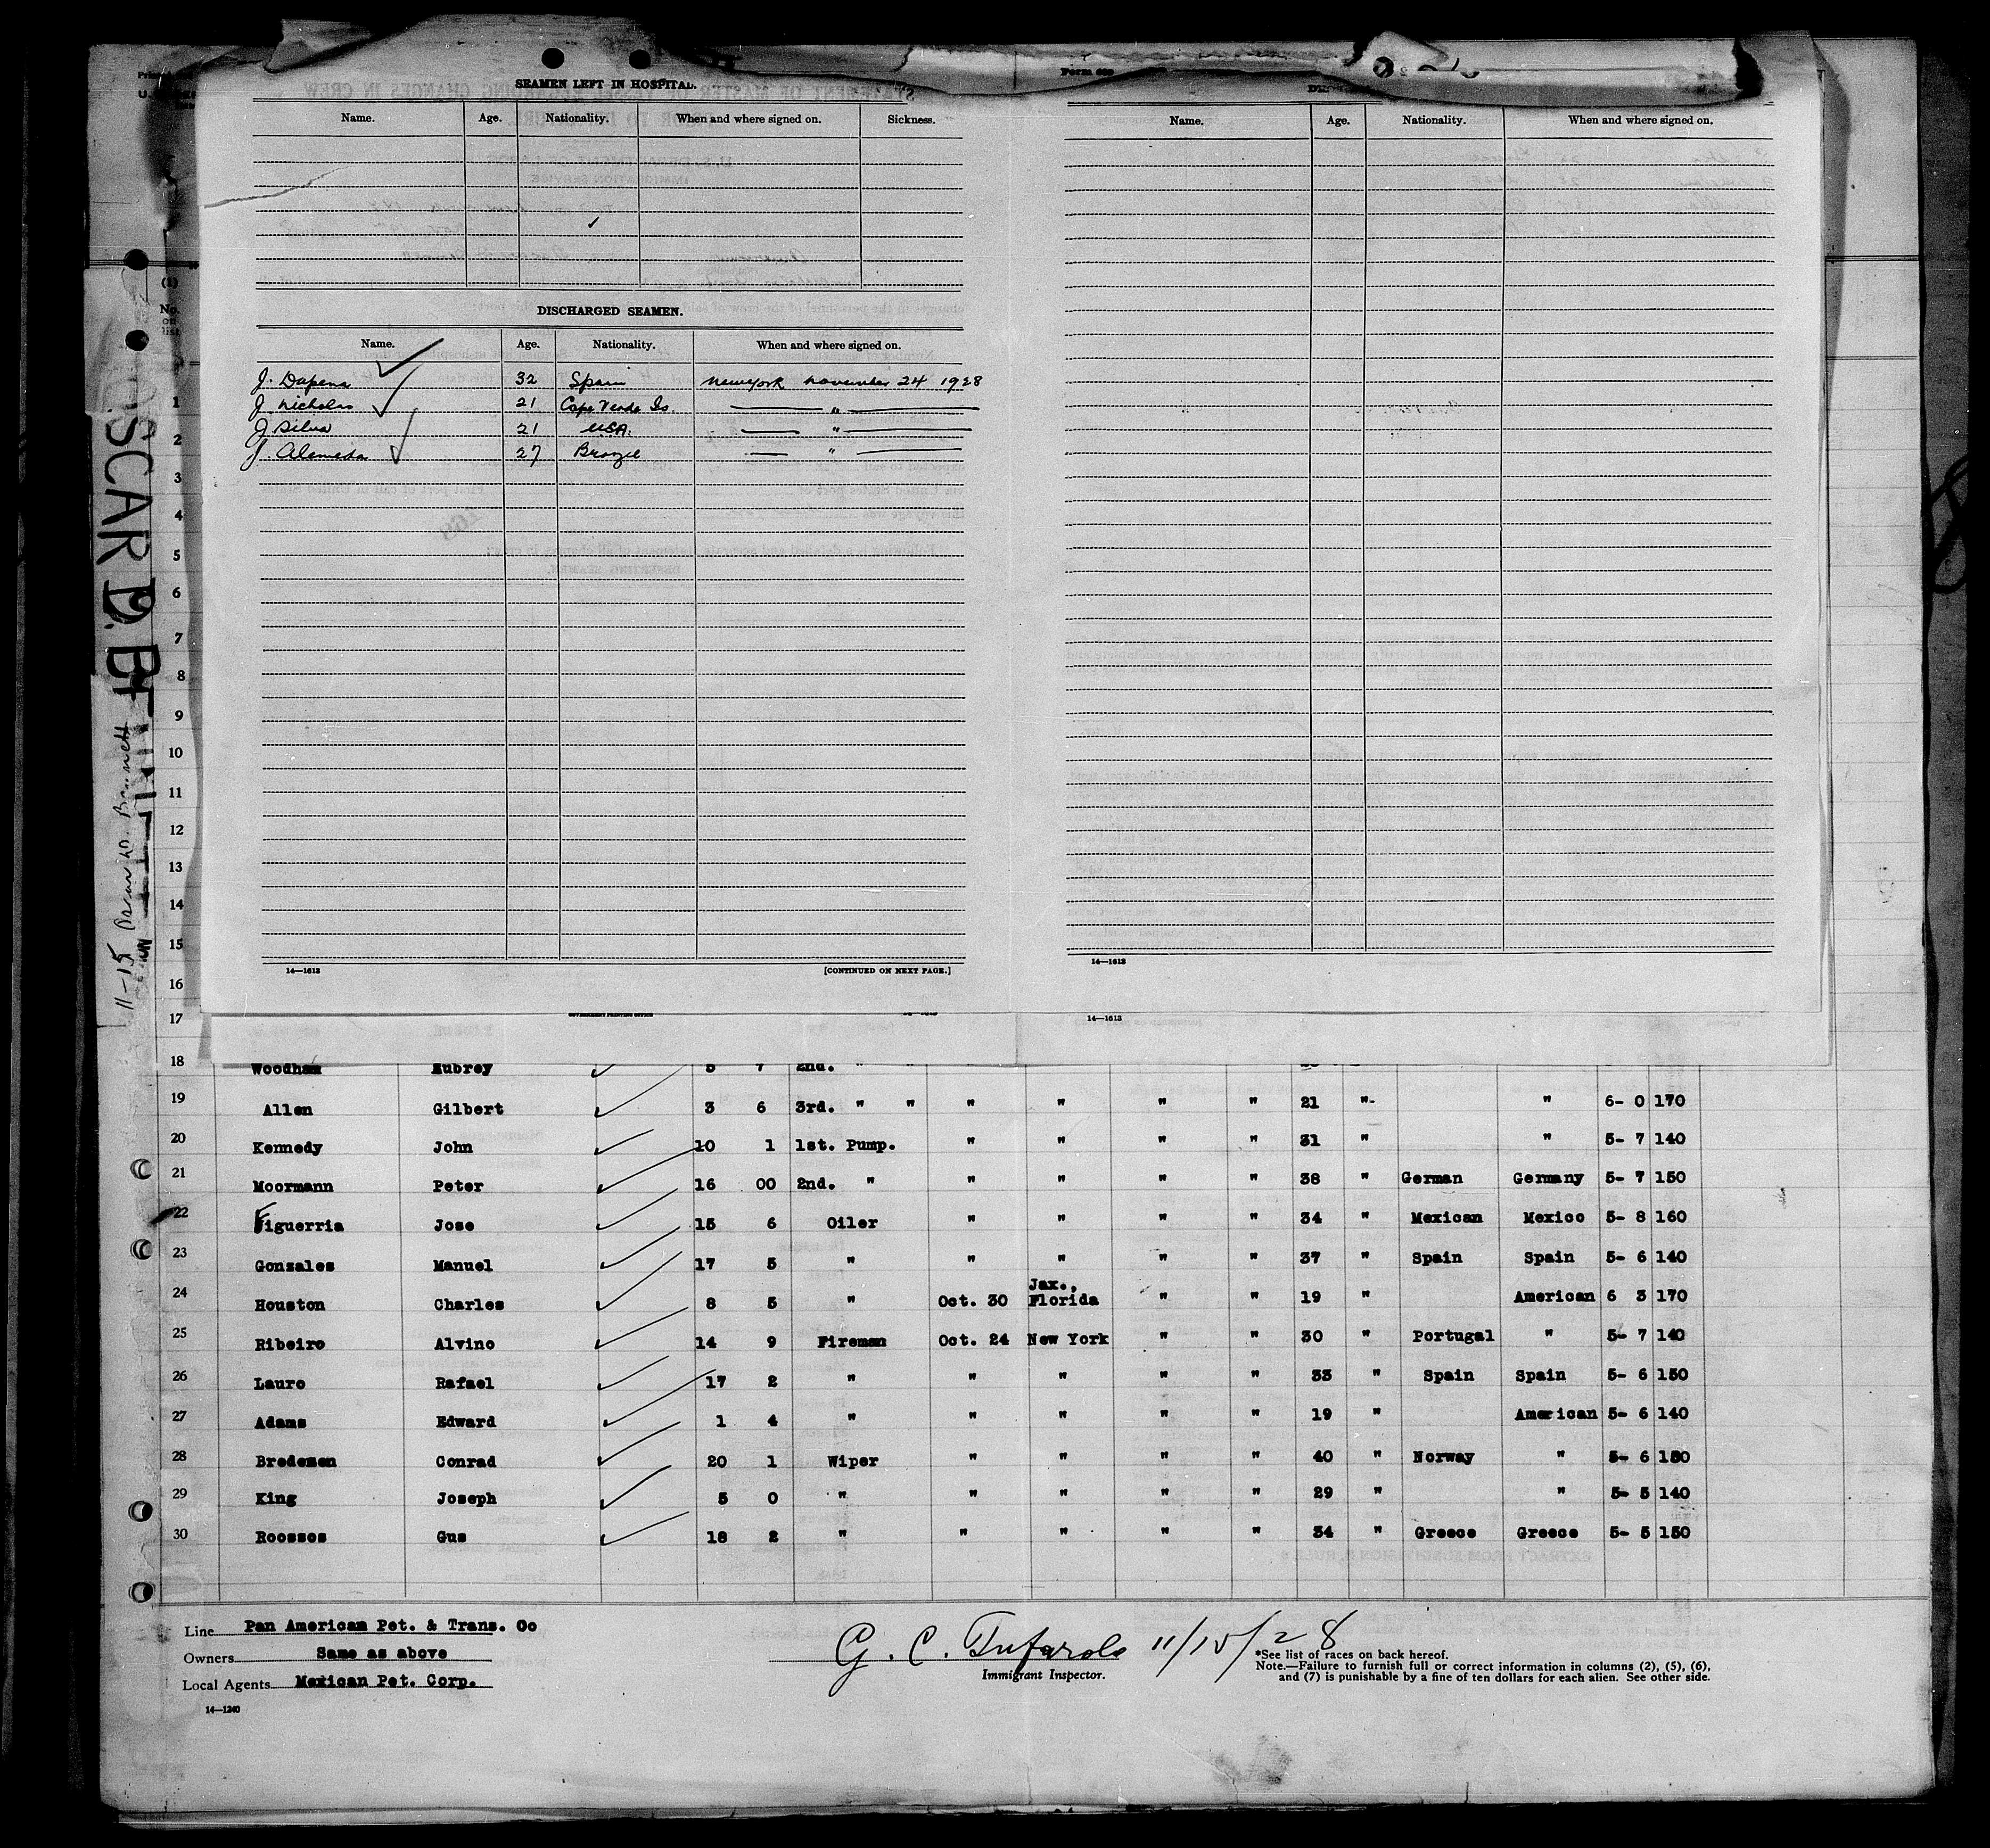 SEAMEN LEFT IN HOSPITAL.
Name. Age. Nationality. When and where signed on. Sickness.
DISCHARGED SEAMEN.
Name. Age. Nationality. When and where signed on.
J. Dapena 32 Spain New York November 24 1928
J. Nicholas 21 Cape Verde Is. "
J Silva 21 USA. "
J. Alemeida 27 Brazil "
14—1613 [CONTINUED ON NEXT PAGE.]
Name. Age. Nationality. When and where signed on.
14—1613
GOVERNMENT PRINTING OFFICE
14—1613
(1)
No. on list
1
2
3
4
5
6
7
8
9
10
11
12
13
14
15
16
17
OSCAR D. BENNETT
11-15 Oscar D. Bennett
18 Woodham Aubrey 5 7 2nd. " "
19 Allen Gilbert 3 6 3rd. " " " " " " 21 "- " 6- 0 170
20 Kennedy John 10 1 1st. Pump. " " " " 31 " " 5- 7 140
21 Moormann Peter 16 00 2nd. " " " " " 38 " German Germany 5- 7 150
22 Figuerria Jose 15 6 Oiler " " " " 34 " Mexican Mexico 5- 8 160
23 Gonzales Manuel 17 5 " " " " " 37 " Spain Spain 5- 6 140
24 Houston Charles 8 5 " Oct. 30 Jax., Florida " " 19 " American 6 3 170
25 Ribeiro Alvino 14 9 Fireman Oct. 24 New York " " 30 " Portugal " 5- 7 140
26 Lauro Rafael 17 2 " " " " " 33 " Spain Spain 5- 6 150
27 Adams Edward 1 4 " " " " " 19 " American 5- 6 140
28 Bredesen Conrad 20 1 Wiper " " " " 40 " Norway " 5- 6 150
29 King Joseph 5 0 " " " " " 29 " " 5- 5 140
30 Roossos Gus 18 2 " " " " " 34 " Greece Greece 5- 5 150
Line Pan American Pet. & Trans. Co
Owners Same as above
Local Agents Mexican Pet. Corp.
14—1240
G. C. Tufarolo 11/15/28
Immigrant Inspector.
*See list of races on back hereof.
Note.—Failure to furnish full or correct information in columns (2), (5), (6),
and (7) is punishable by a fine of ten dollars for each alien. See other side.